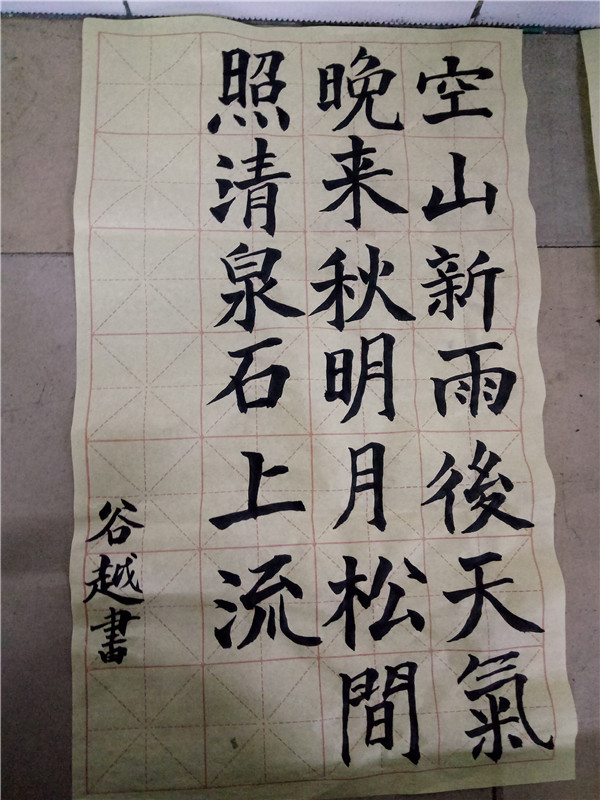 空山新雨後天氣
晚来秋明月松間
照清泉石上流
谷越書